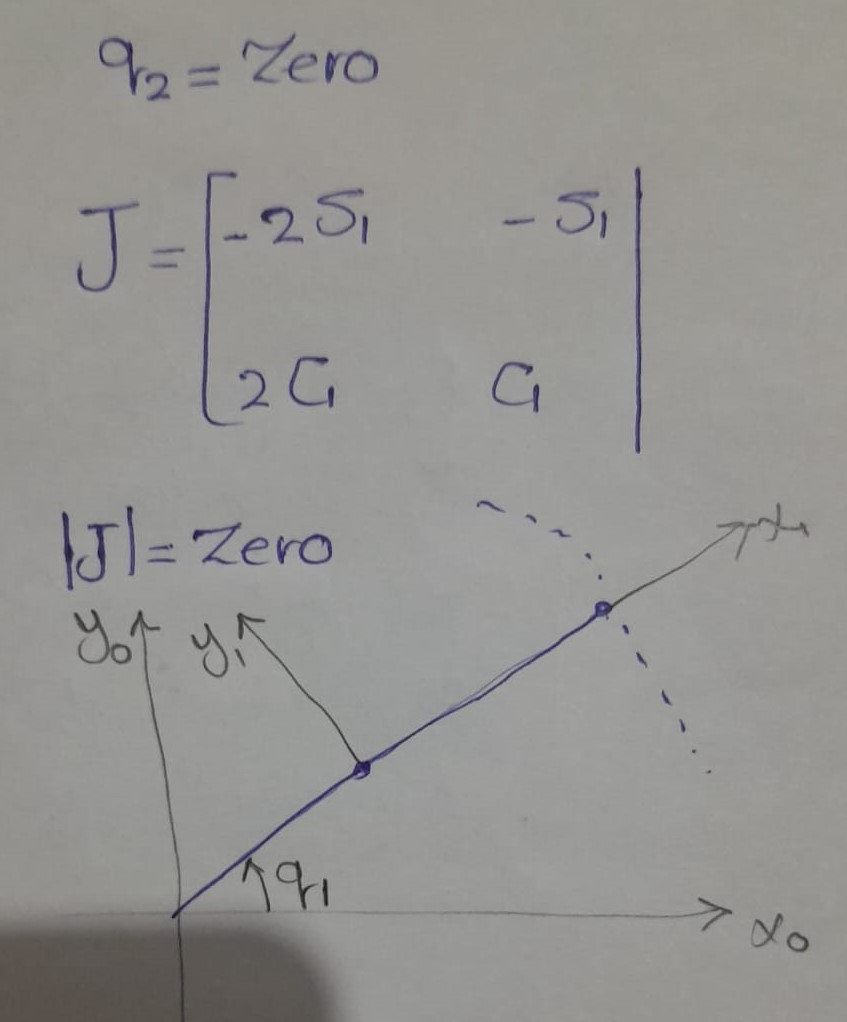 q₂ = Zero
J = [ -2S₁ -S₁
2C₁ C₁ |
|J| = Zero
x₁
y₀ y₁
q₁
x₀